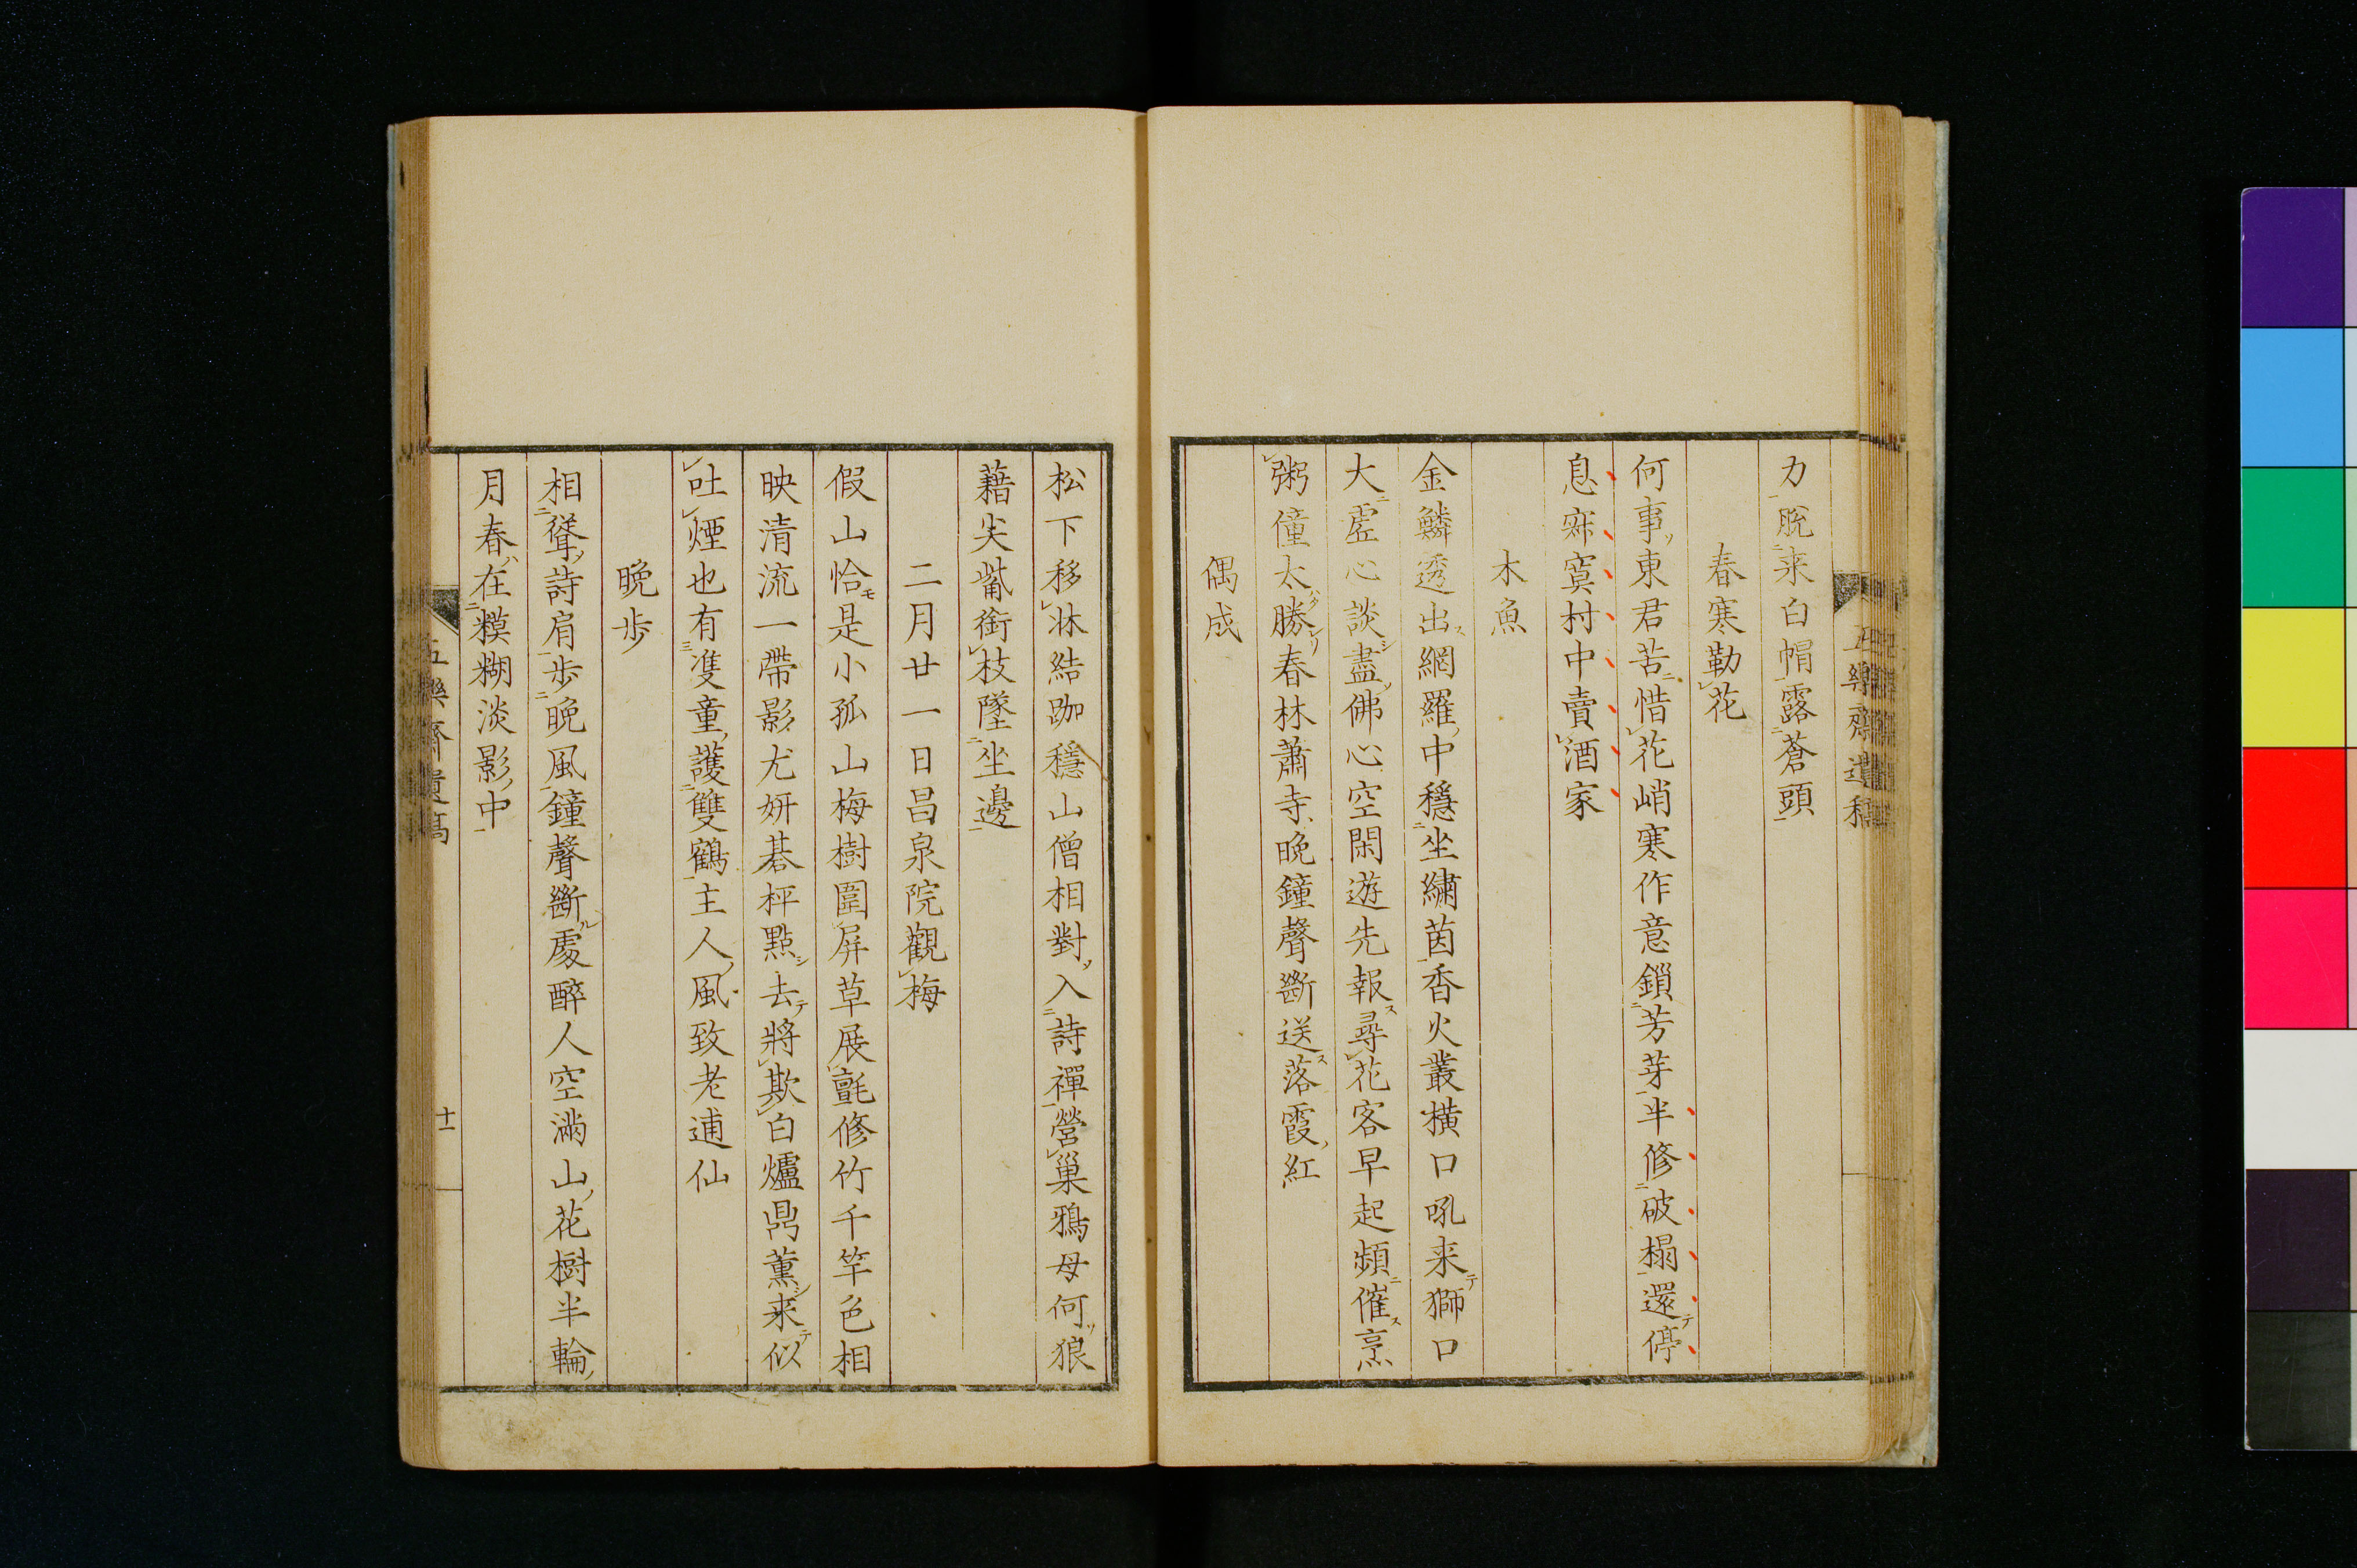 力脱来白帽露蒼頭
春寒勒花
何事東君苦惜花峭寒作意鎖芳芽半修破榻還停
息寐寞村中賣酒家
木魚
金鱗透出網羅中穩坐繡茵香火叢横口吼来獅口
大虚心談盡佛心空閑遊先報尋花客早起頻催烹
粥僮太勝春林蕭寺晩鐘聲斷送落霞紅
偶成
松下移牀結跏穩山僧相對入詩禪營巢鴉母何狼
藉尖觜銜枝墜坐邊
二月廿一日昌泉院觀梅
假山恰是小孤山梅樹圍屏草展氈修竹千竿色相
映清流一帶影尤妍碁枰點去將欺白爐鼎薫来似
吐煙也有隻童護雙鶴主人風致老逋仙
晩歩
相聳詩肩歩晩風鐘聲斷處醉人空満山花樹半輪
月春在糢糊淡影中
五樂齋遺稿
十一